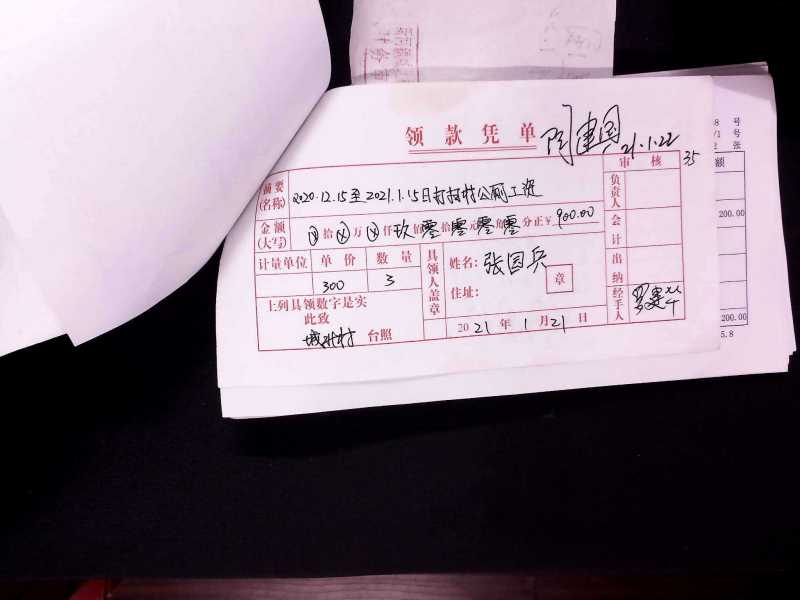 领款凭单
陶建国
21.1.22
35
审核
摘要
(名称)
2020.12.15至2021.1.15日打扫村公厕工资
负责人
金额
(大写)
ⓧ拾ⓧ万ⓧ仟玖佰零拾零元零角零分正¥900.00
会计
计量单位 单价 数量
300 3
具领人盖章
姓名：张国兵
住址：
章
出纳
上列具领数字是实
此致
台照
2021年1月21日
经手人
号
号
张
额
200.00
200.00
5.8